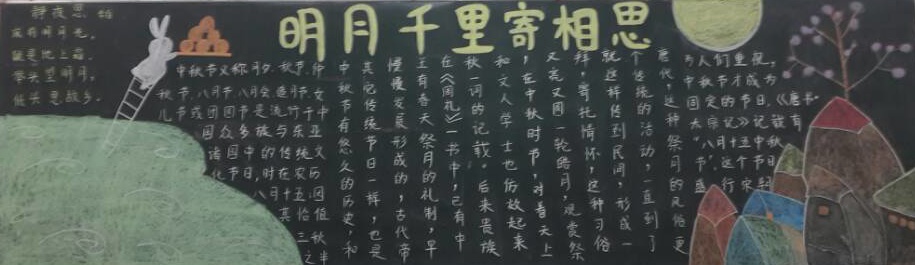 明月千里寄相思
静夜思
床前明月光,
疑是地上霜。
举头望明月,
低头思故乡。
中秋节又称月夕、秋节、仲
秋节、八月节、八月会、追月节、女
儿节或团圆节,是流行于中
国众多民族与东亚
诸国中的传统文
化节日,时在农历
八月十五
其恰值
三秋
之半
中秋节有悠久的历史,和
其它传统节日一样,也是
慢慢发展形成的,古代帝
王有春天祭月的礼制,早
在《周礼》一书中,已有中
秋一词的记载。后来贵族
和文人学士也仿效起来
,在中秋时节,对着天上
又亮又圆一轮皓月,观赏祭
拜,寄托情怀,这种习俗
就这样传到民间,形成一
个传统的活动,一直到了
唐代,这种祭月的风俗更
为人们重视,
中秋节才成为
固定的节日,《唐书·
太宗记》记载有
“八月十五中秋
节”,这个节日
盛行宋朝